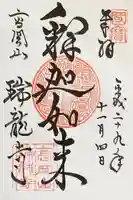 奉拝
平成二十九年
十一月四日
釈迦如来
高岡山
瑞龍寺